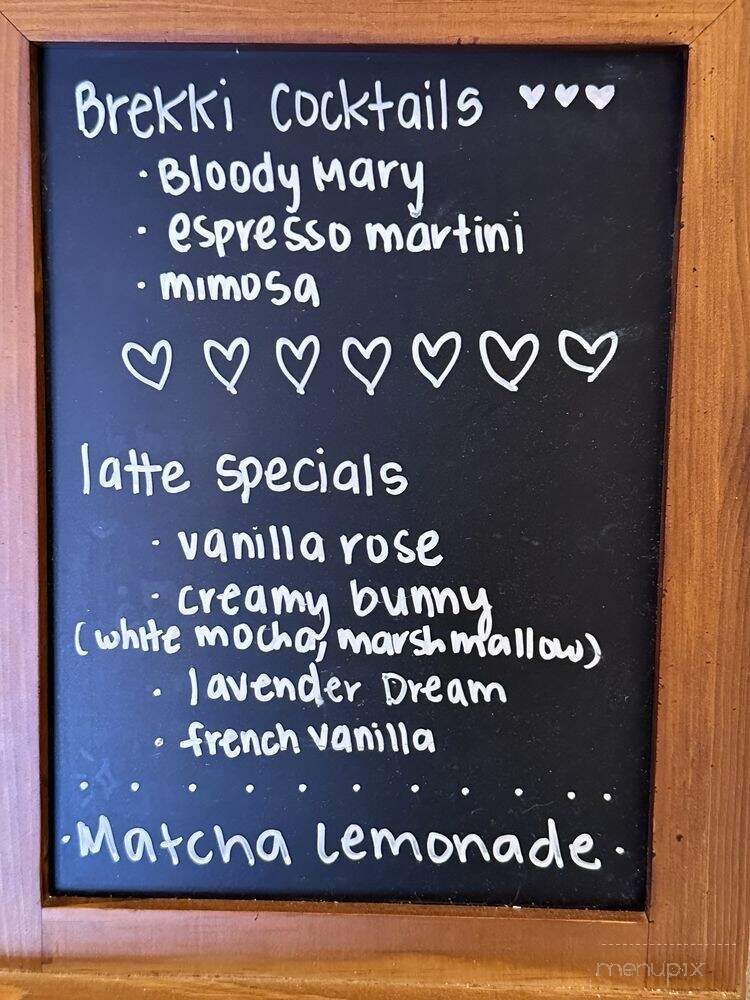 Brekki Cocktails ♥♥♥
· Bloody Mary
· espresso martini
· mimosa
♡ ♡ ♡ ♡ ♡ ♡ ♡
latte specials
· vanilla rose
· creamy bunny
(white mocha, marshmallow)
· lavender Dream
· french vanilla
· · · · · · · · · · ·
·Matcha Lemonade·
menupix